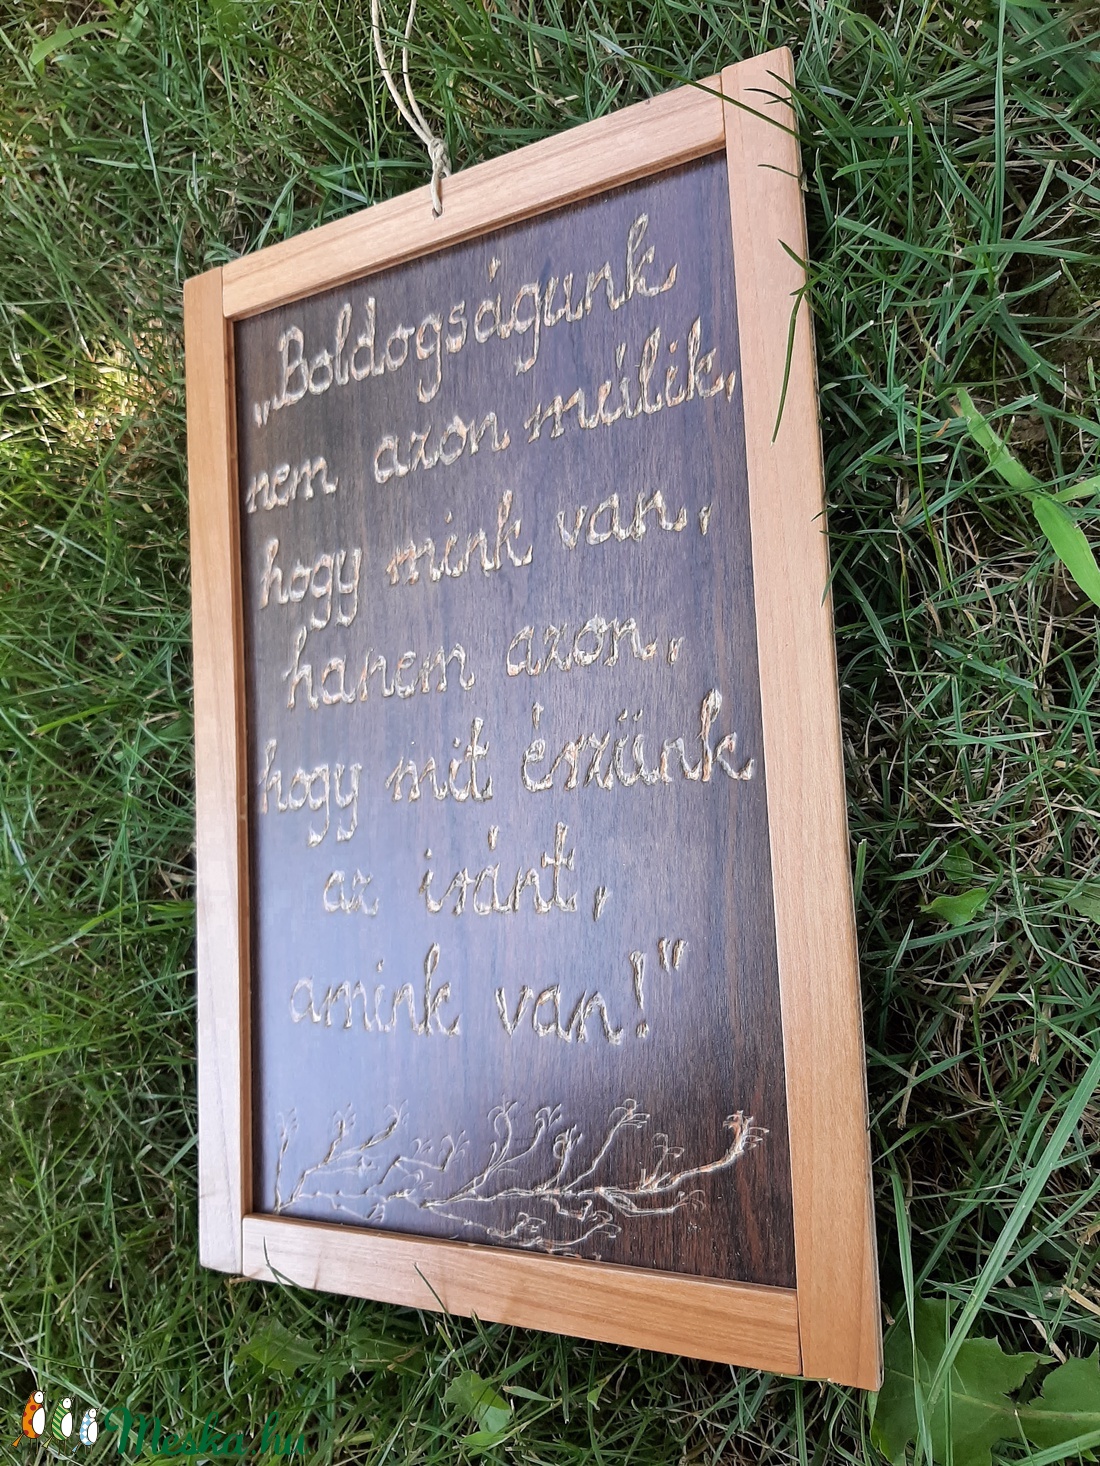 „Boldogságunk
nem azon múlik,
hogy mink van,
hanem azon,
hogy mit érzünk
az iránt,
amink van!”
Meska.hu